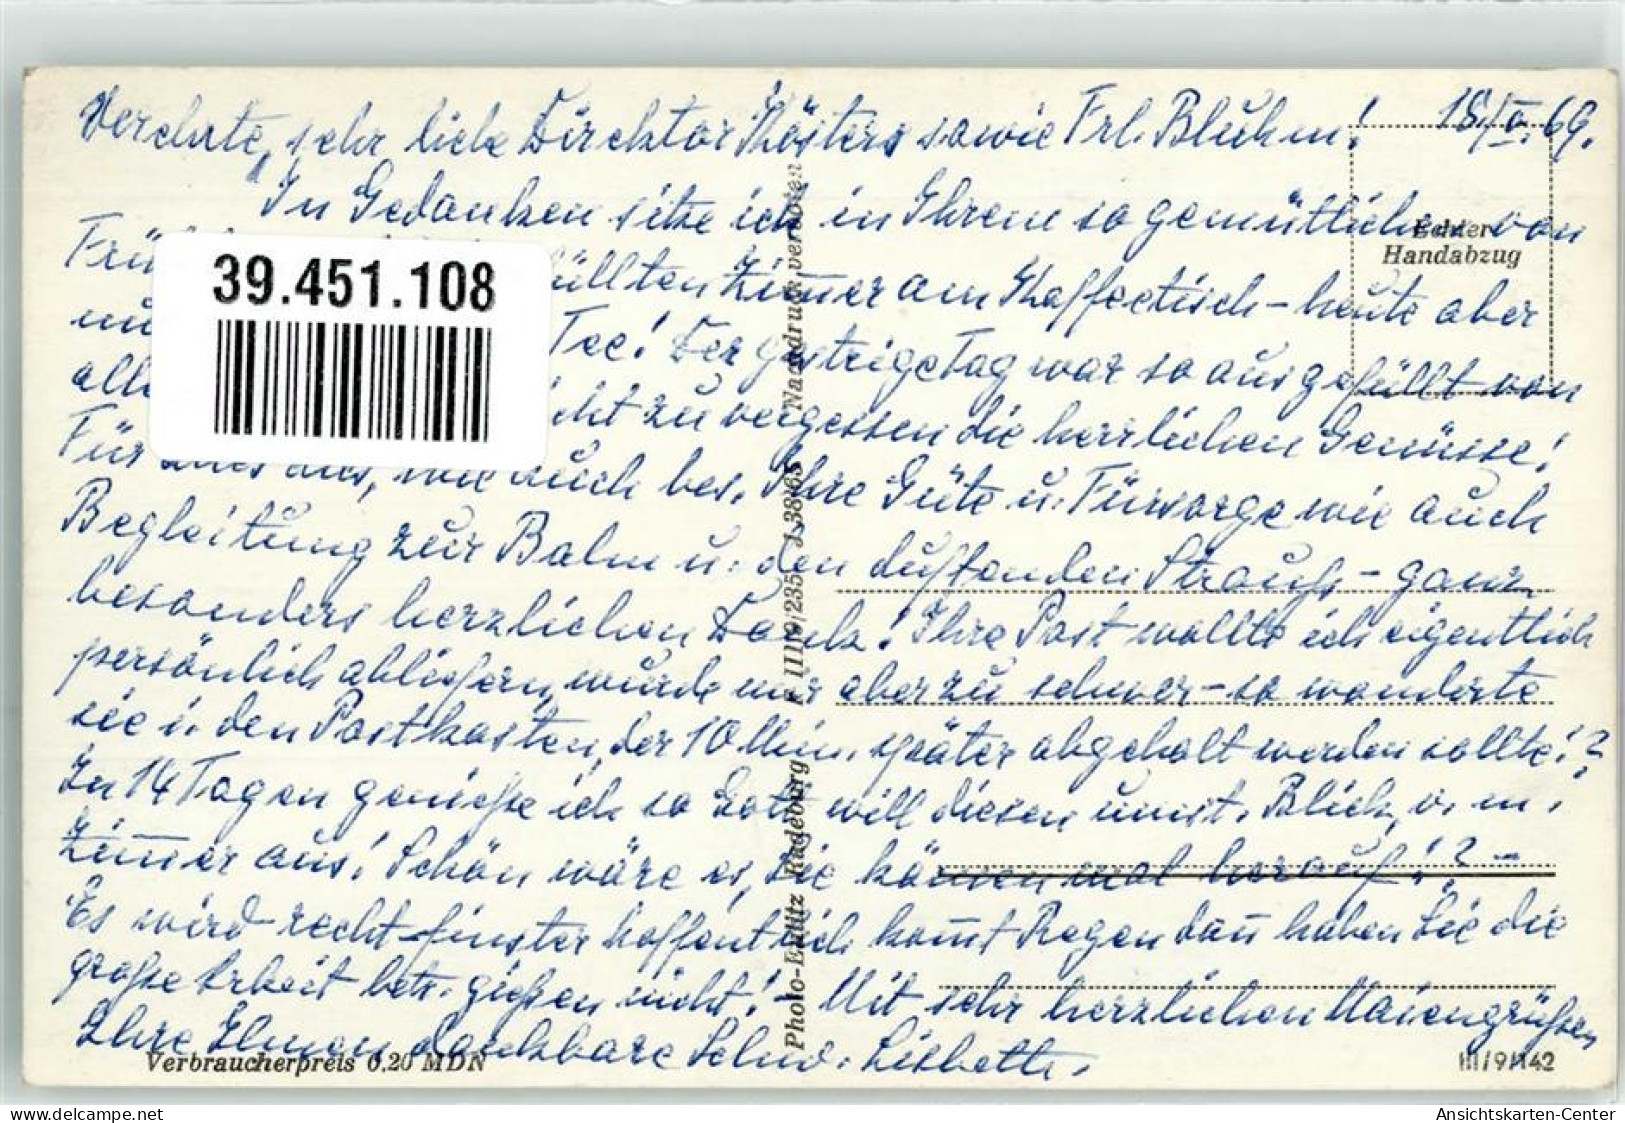 Verehrte, sehr liebe Direktor Kösters sowie Frl. Bluhm! 18./V.69.
In Gedanken sitze ich in Ihrem so gemütlichen von
Echter
Handabzug
Früh
39.451.108
üllten Zim̅er am Kaffeetisch - heute aber
nu
Tee! Der gestrige Tag war so ausgefüllt von
alle
cht zu vergessen die herrlichen Genüsse!
Für alles dies, wie auch bes. Ihre Güte u. Fürsorge wie auch
Begleitung zur Bahn u. den duftenden Strauß - ganz
besonders herzlichen Dank! Ihre Post wollte ich eigentlich
persönlich abliefern, wurde mir aber zu schwer - so wanderte
sie i. den Postkasten, der 10 Min. später abgeholt werden sollte!?
In 14 Tagen genieße ich so Gott will diesen umst. Blick v. m.
Zim̅er aus! Schön wäre es, Sie kämen mal herauf!? -
Es wird recht finster hoffentlich kom̅t Regen dan̅ haben Sie die
große Arbeit betr. gießen nicht! - Mit sehr herzlichen Maiengrüßen
Ihre Ihnen dankbare Schw. Lisbeth.
Verbraucherpreis 0,20 MDN
III/9/142
Photo-Edlitz Radeburg
Nachdruck verboten
Ansichtskarten-Center